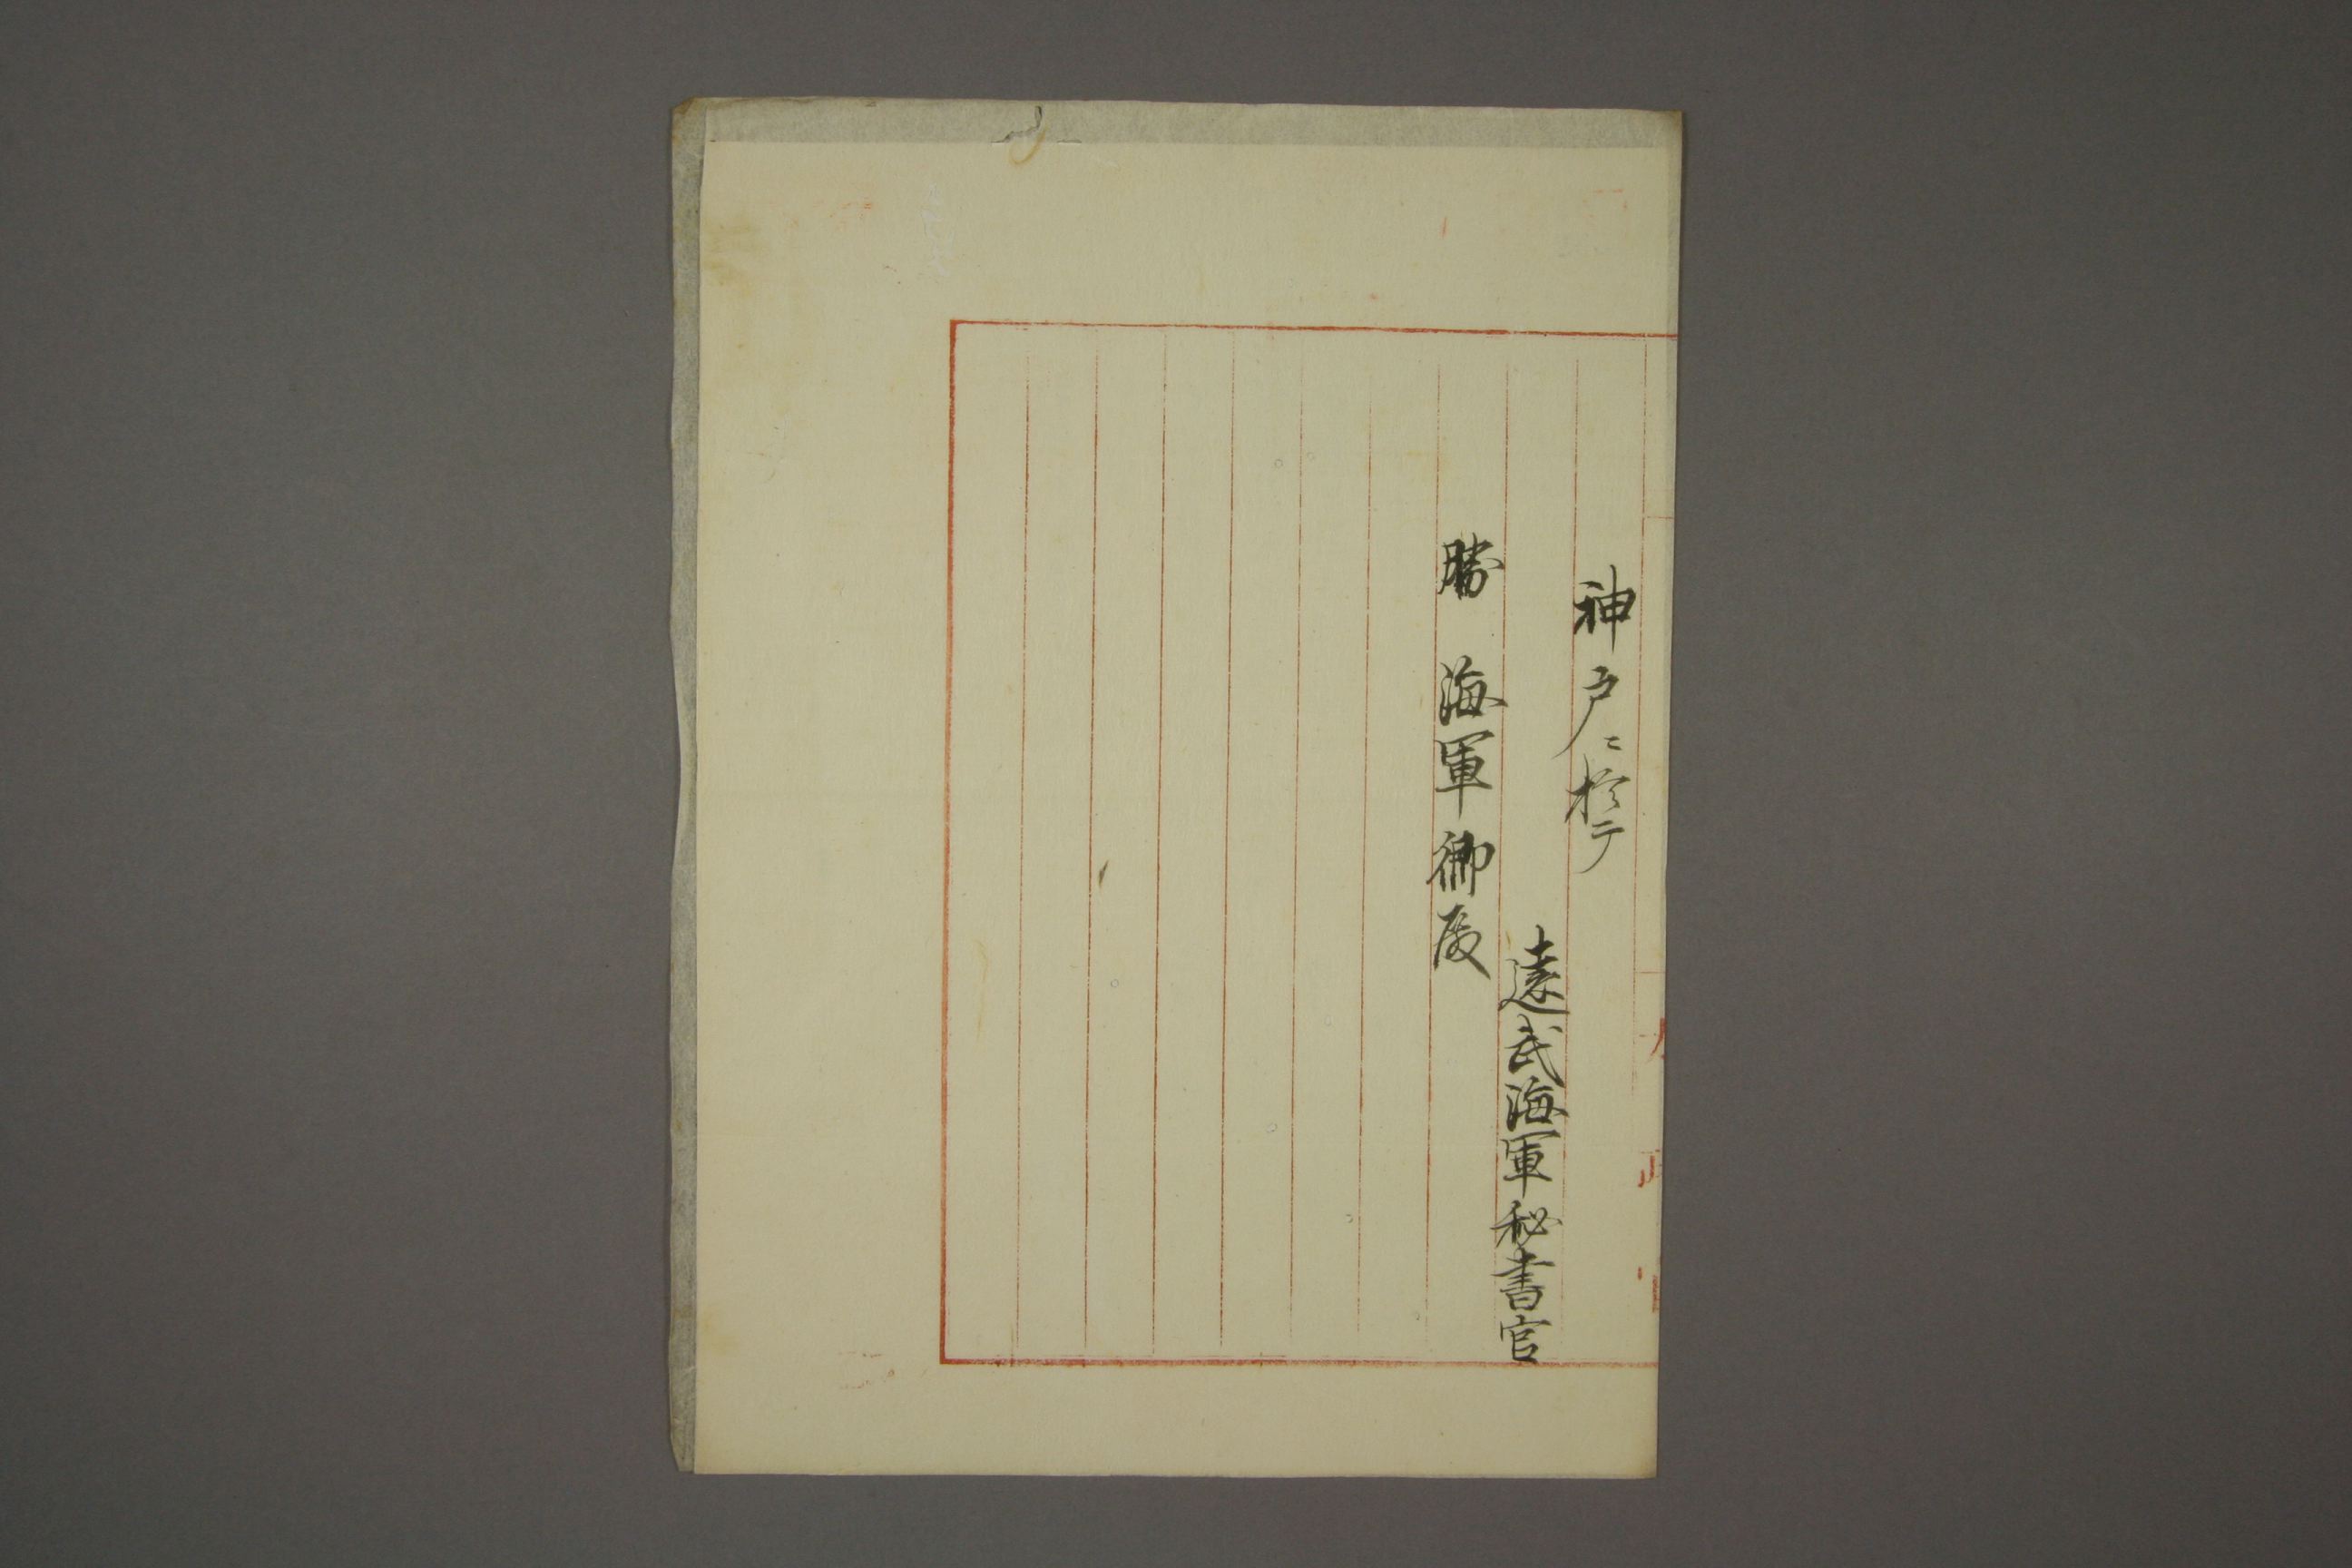 神戸ニ於テ
遠武海軍秘書官
勝海軍卿殿